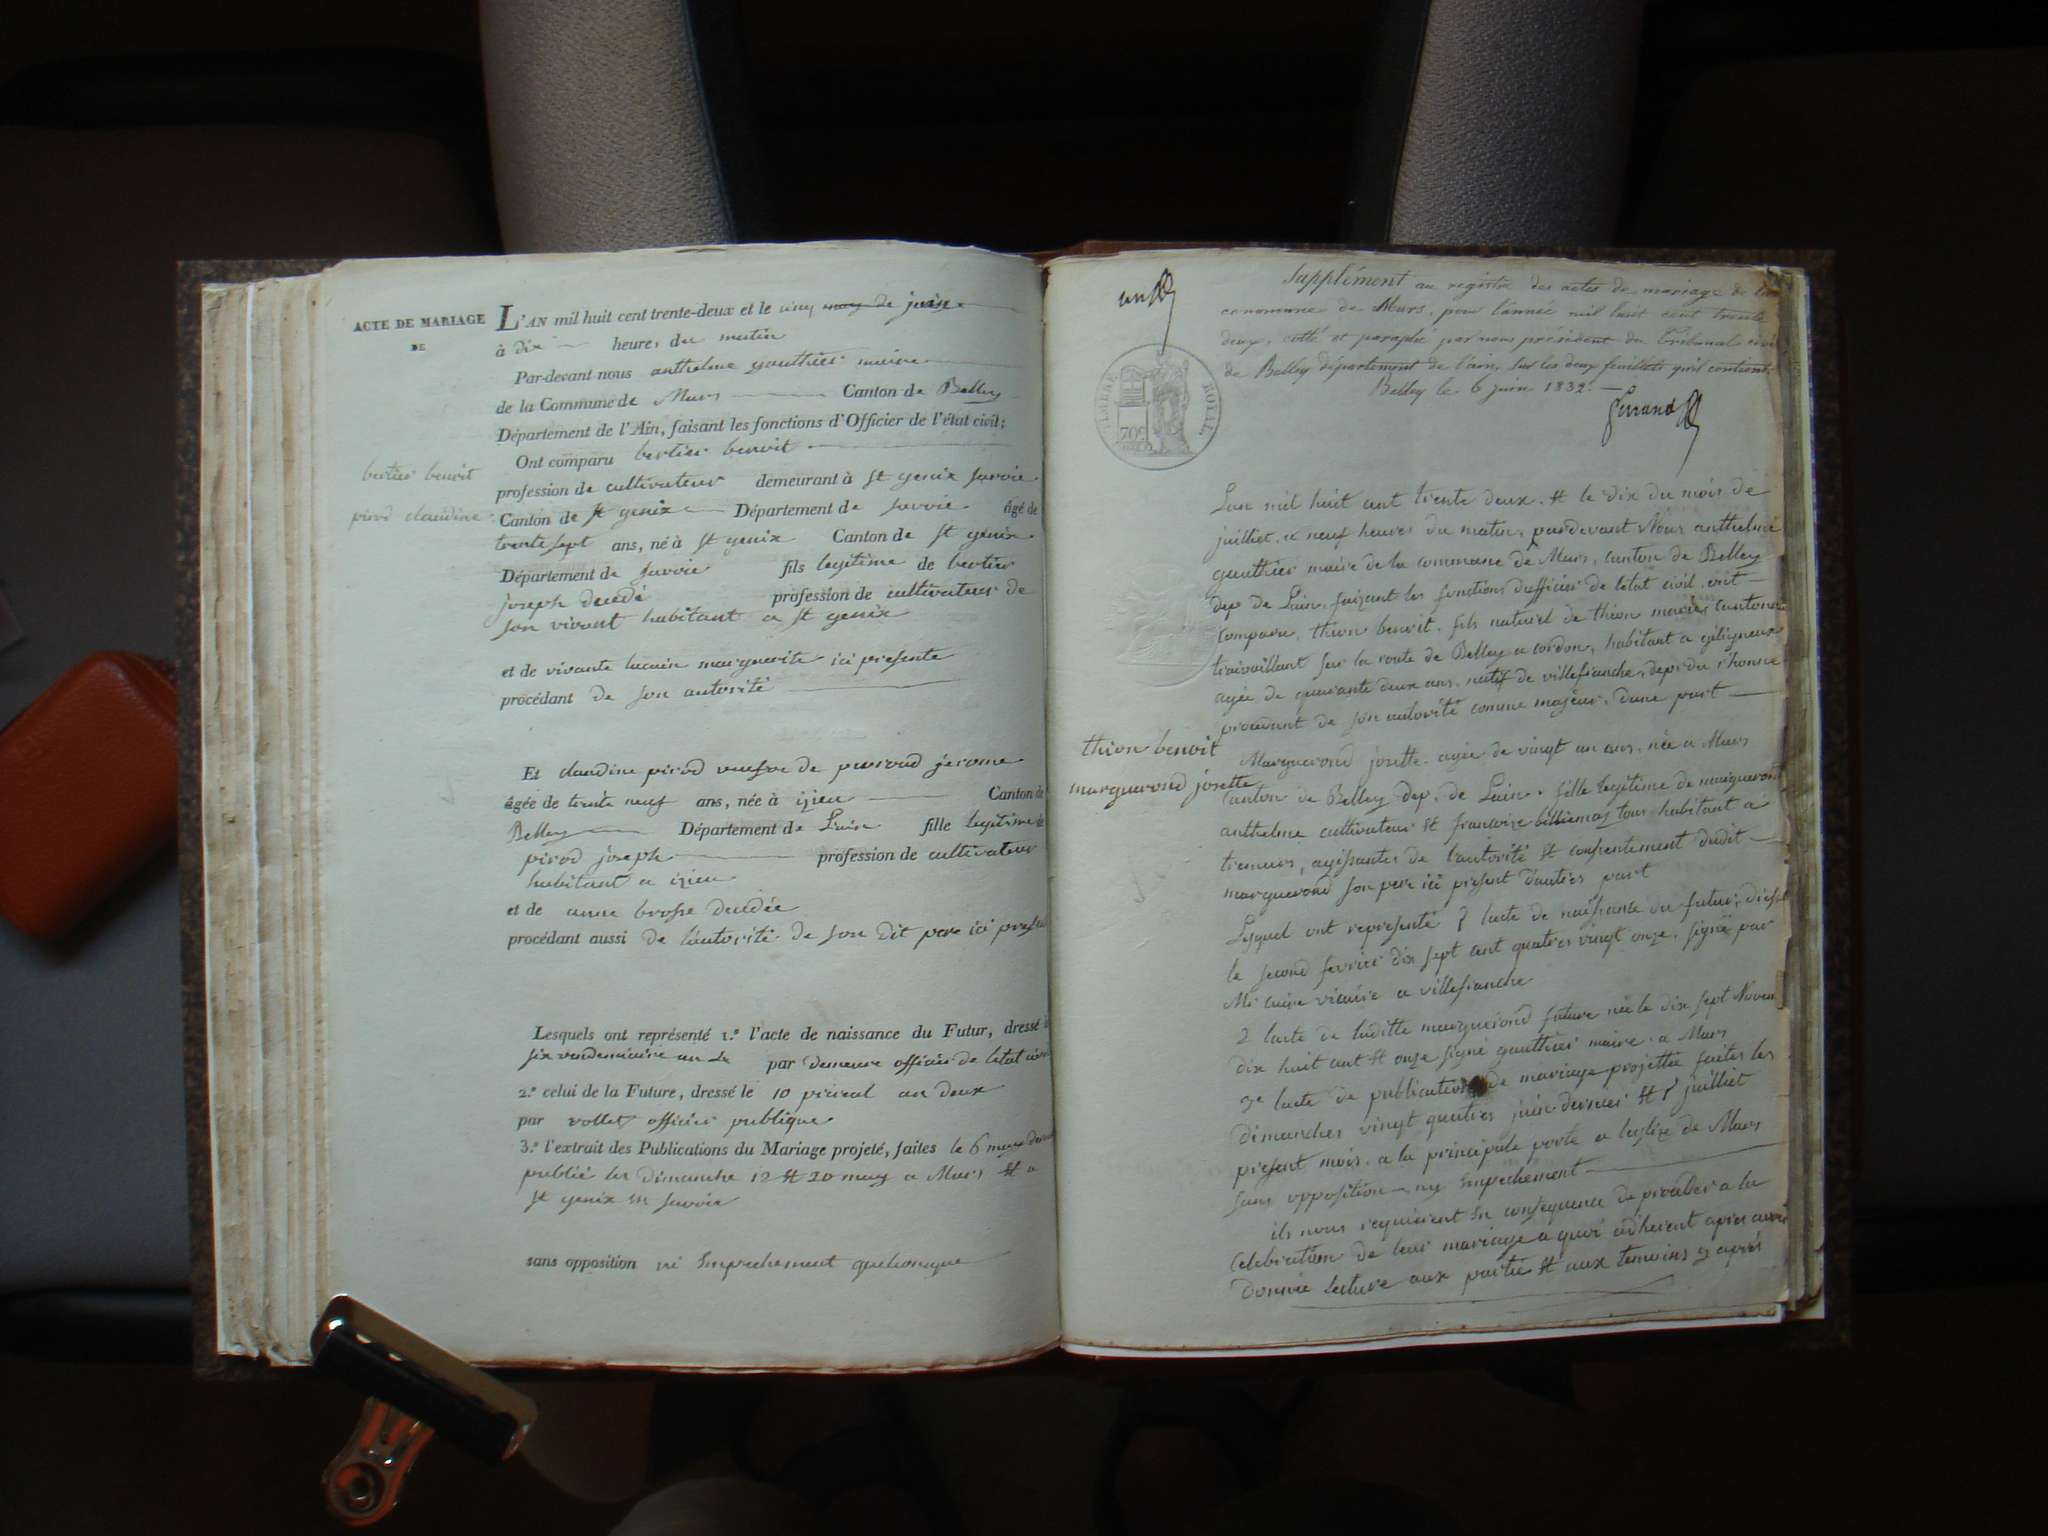 ACTE DE MARIAGE
DE
L'AN mil huit cent trente-deux et le cinq may de juin
à dix heures du matin
Par-devant nous anthelme gauthier maire
de la Commune de Murs Canton de Belley
Département de l'Ain, faisant les fonctions d'Officier de l'état civil;
Ont comparu bertier benoit
bertier benoit
profession de cultivateur demeurant à st genix savoie
pirod claudine
Canton de st genix Département de savoie âgé de
trente sept ans, né à st genix Canton de st genix
Département de savoie fils legitime de bertier
joseph decedé profession de cultivateur de
son vivant habitant a st genix
et de vivante marguerite ici presente
procédant de son autorité
Et claudine pirod veufve de jerome
âgée de trente neuf ans, née à izieu Canton de
Belley Département de Lain fille legitime de
pirod joseph profession de cultivateur
habitant a izieu
et de anne brosse decedée
procédant aussi de lautorité de son dit pere ici present
Lesquels ont représenté 1.º l'acte de naissance du Futur, dressé le
six vendemiaire an par demeure officier de letat civil
2.º celui de la Future, dressé le 10 prereal an deux
par vollet officier publique
3.º l'extrait des Publications du Mariage projeté, faites le 6 may dernier
publié les dimanche 12 et 20 may a Murs et a
st genix en savoie
sans opposition ni Empechement quelconque
Supplément au registre des actes de mariage de la
commune de Murs, pour l'année mil huit cent trente
deux, cotté et paraphé par nous président du Tribunal civil
de Belley département de l'ain, sur les deux feuillets qu'il contient,
Belley le 6 juin 1832.
TIMBRE ROYAL
70c
Lan mil huit cent trente deux et le dix du mois de
juillet, a neuf heures du matin, pardevant Nous anthelme
gauthier maire de la commune de Murs, canton de Belley
dep. de Lain, faizant les fonctions dofficier de letat civil, ont
Comparu, thion benoit, fils naturel de thion cantonier
travaillant sur la route de Belley a cordon, habitant a
agée de quarante deux ans, natif de villefranche, dep. du rhonne
procedant de son autorité comme majeur, dune part
thion benoit
marguerond josette
Marguerond josette, agée de vingt un ans, née a Murs
Canton de Belley dep. de Lain, fille legitime de marguerond
anthelme cultivateur et francoise billiemaz tous habitant a
agissantes de lautorité et consentement dudit
marguerond son pere ici present dautres part
Lesquel ont representé 1 lacte de naissance du futur, dressé
le second fevrier dix sept cent quatres vingt onze, signé par
Mr vicaire a villefranche
2 lacte de laditte marguerond future née le dix sept Novem
dix huit cent et onze signé gauthier maire a Murs
3e lacte de publication de mariage projettée faites les
dimanches vingt quatres juin dernier et 1 juillet
present mois, a la principale porte a leglize de Murs
sans opposition ny Empechement
ils nous requierent En consequence de proceder a la
Celebration de leur mariage a quoi adherent apres avoir
donnée lecture aux partie et aux temoins y après